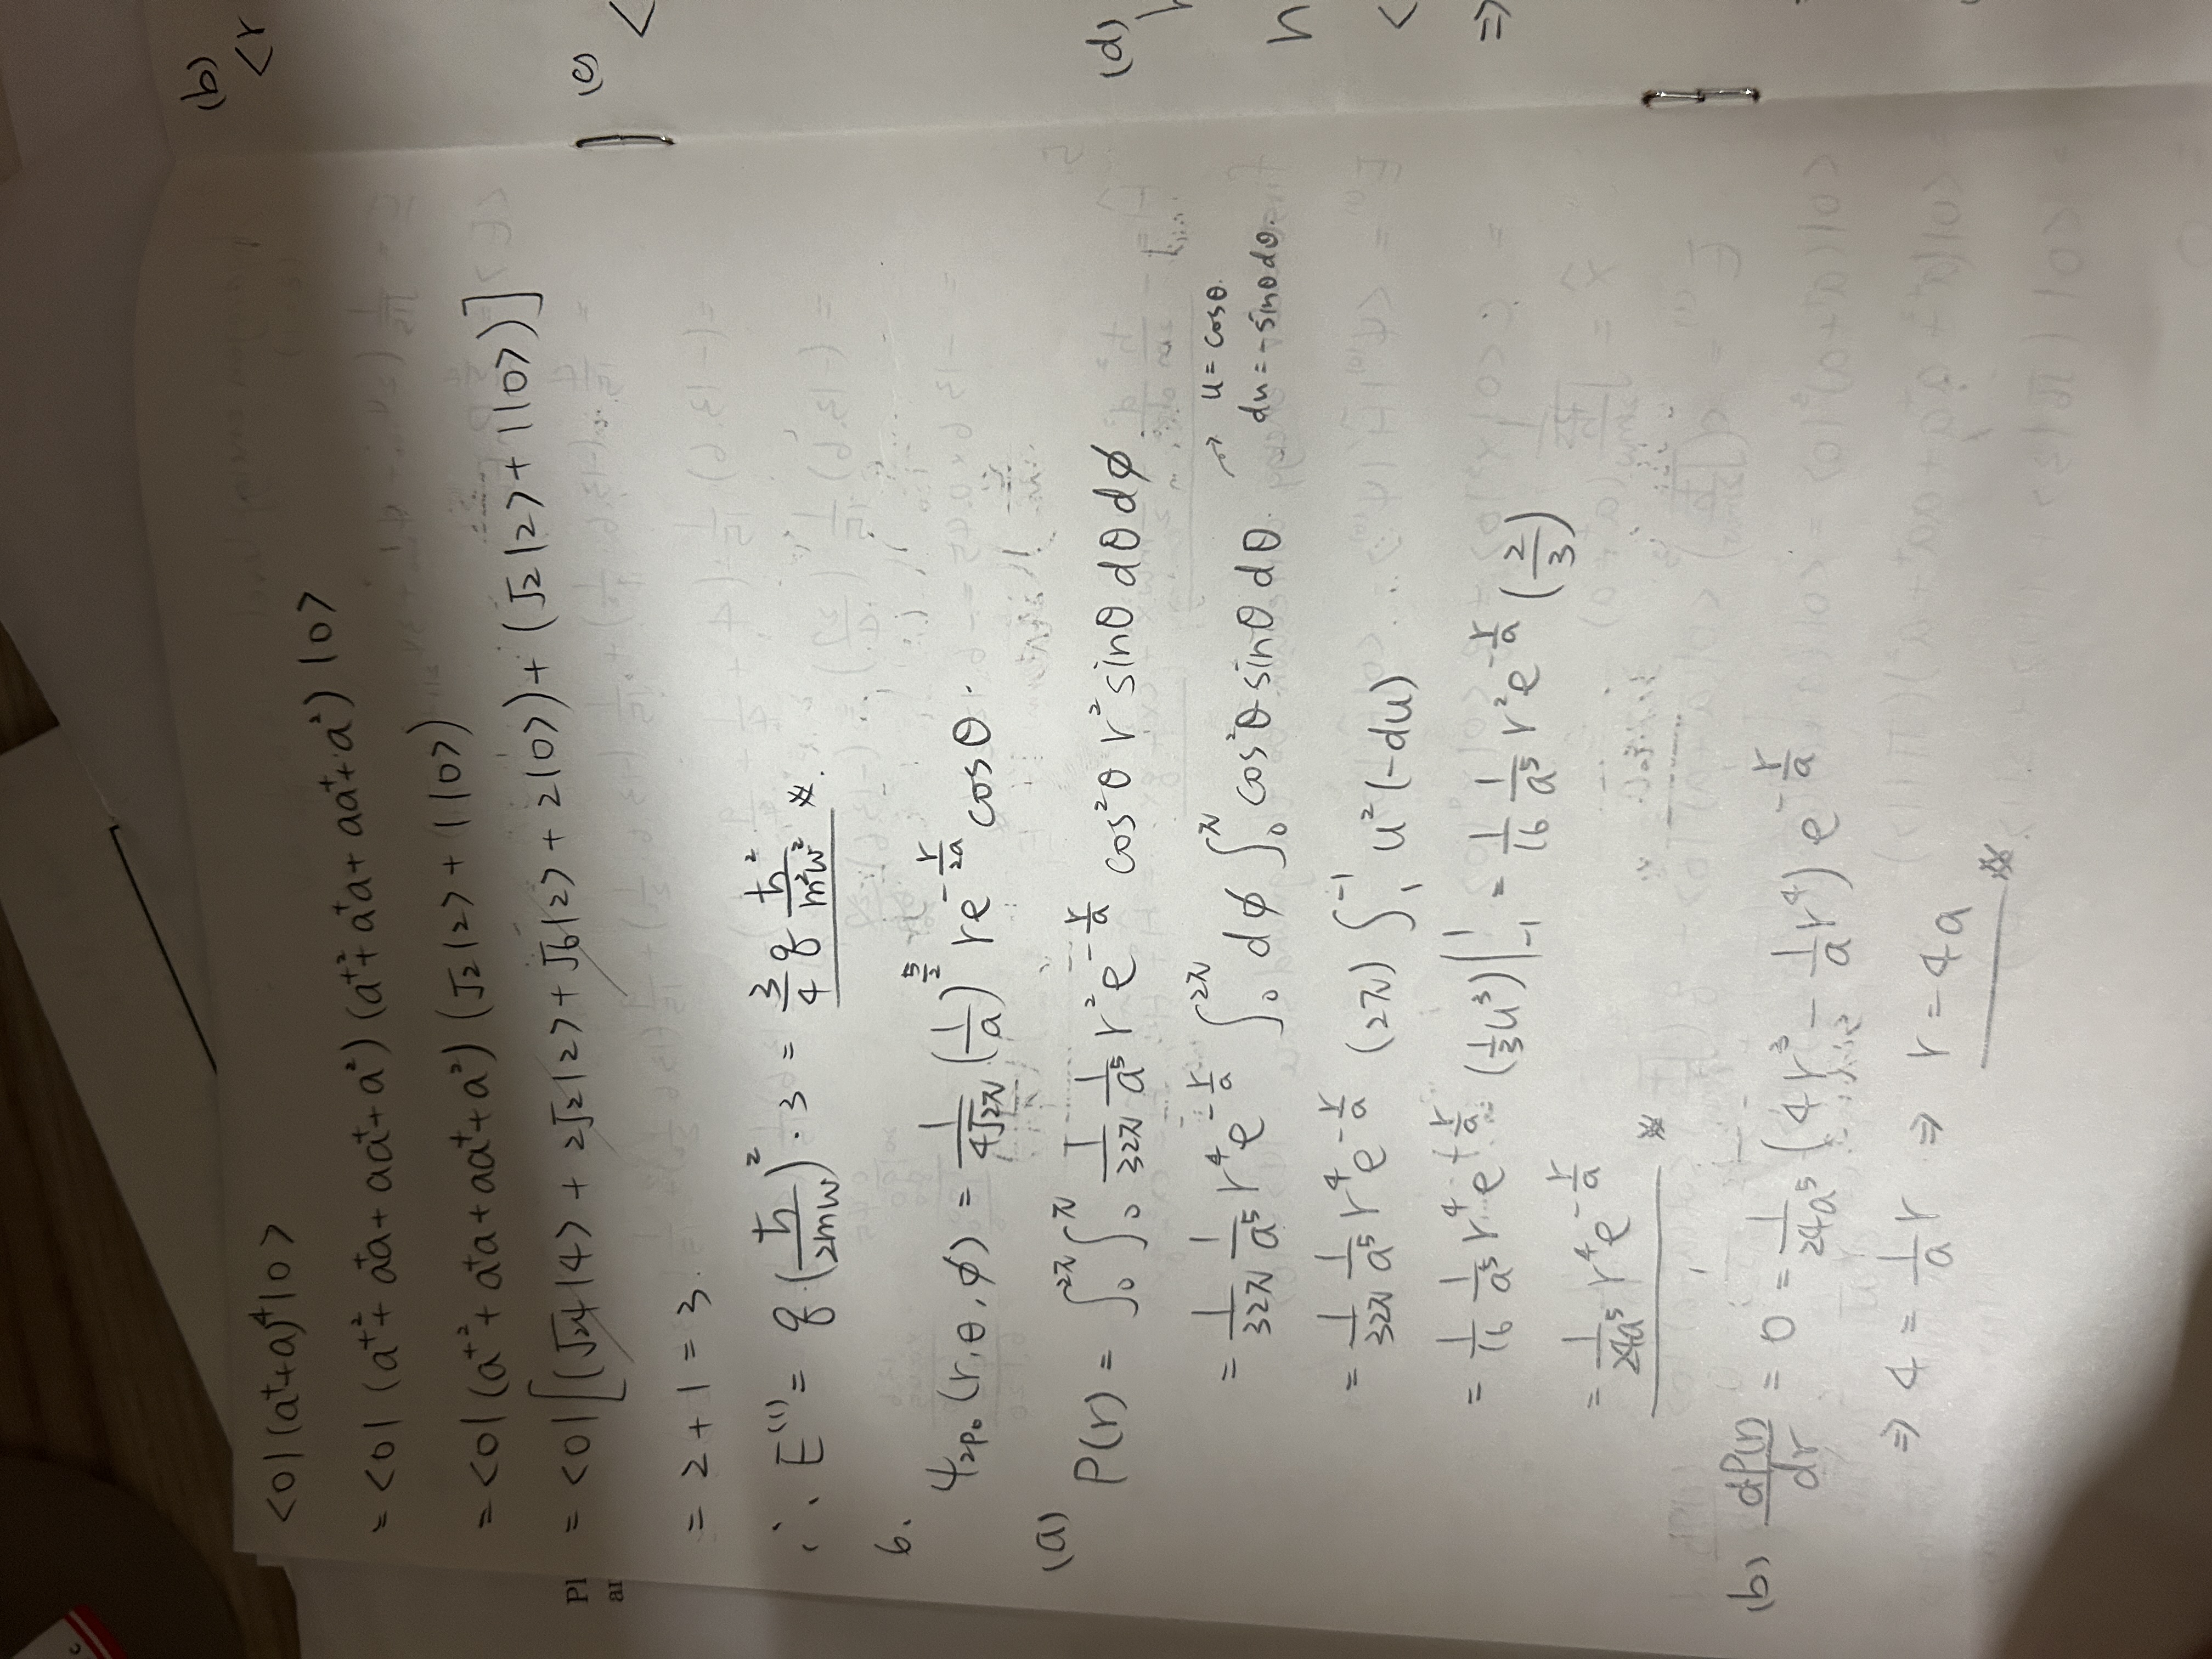 <0|(a⁺+a)⁴|0>
= <0| (a⁺²+ a⁺a + aa⁺+ a²) (a⁺²+ a⁺a + aa⁺+ a²) |0>
= <0| (a⁺²+ a⁺a + aa⁺+ a²) (√2 |2> + 1 |0>)
= <0| [(√24 |4> + 2√2 |2> + √6 |2> + 2 |0>) + (√2 |2> + 1 |0>)]
= 2 + 1 = 3.
∴ E⁽¹⁾ = g (ħ/2mw)² · 3 = 3/4 g ħ²/m²w² ※.
6.
ψ2p₀ (r, θ, φ) = 1/(4√2π) (1/a)^(5/2) r e^(-r/2a) cosθ .
(a)
P(r) = ∫₀^2π ∫₀^π 1/32π 1/a⁵ r² e^(-r/a) cos²θ r² sinθ dθ dφ.
= 1/32π 1/a⁵ r⁴ e^(-r/a) ∫₀^2π dφ ∫₀^π cos²θ sinθ dθ. → u = cosθ.
du = -sinθ dθ.
= 1/32π 1/a⁵ r⁴ e^(-r/a) (2π) ∫₁^-1 u² (-du)
= 1/16 1/a⁵ r⁴ e^(-r/a) (1/3 u³)|₋₁^1 = 1/16 1/a⁵ r² e^(-r/a) (2/3)
= 1/24a⁵ r⁴ e^(-r/a) ※
(b) dP(r)/dr = 0 = 1/24a⁵ (4r³ - 1/a r⁴) e^(-r/a)
⇒ 4 = 1/a r ⇒ r = 4a ※
Pl
ar
(b)
<r
(c)
<
(d)
h
n
<
⇒